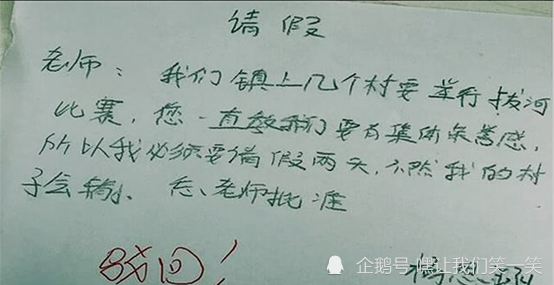 请假
老师：我们镇上几个村要举行拔河
比赛，您一直教我们要有集体荣誉感，
所以我必须要请假两天，不然我的村
子会输。 老师批准
驳回！
企鹅号 嘿让我们笑一笑
杨